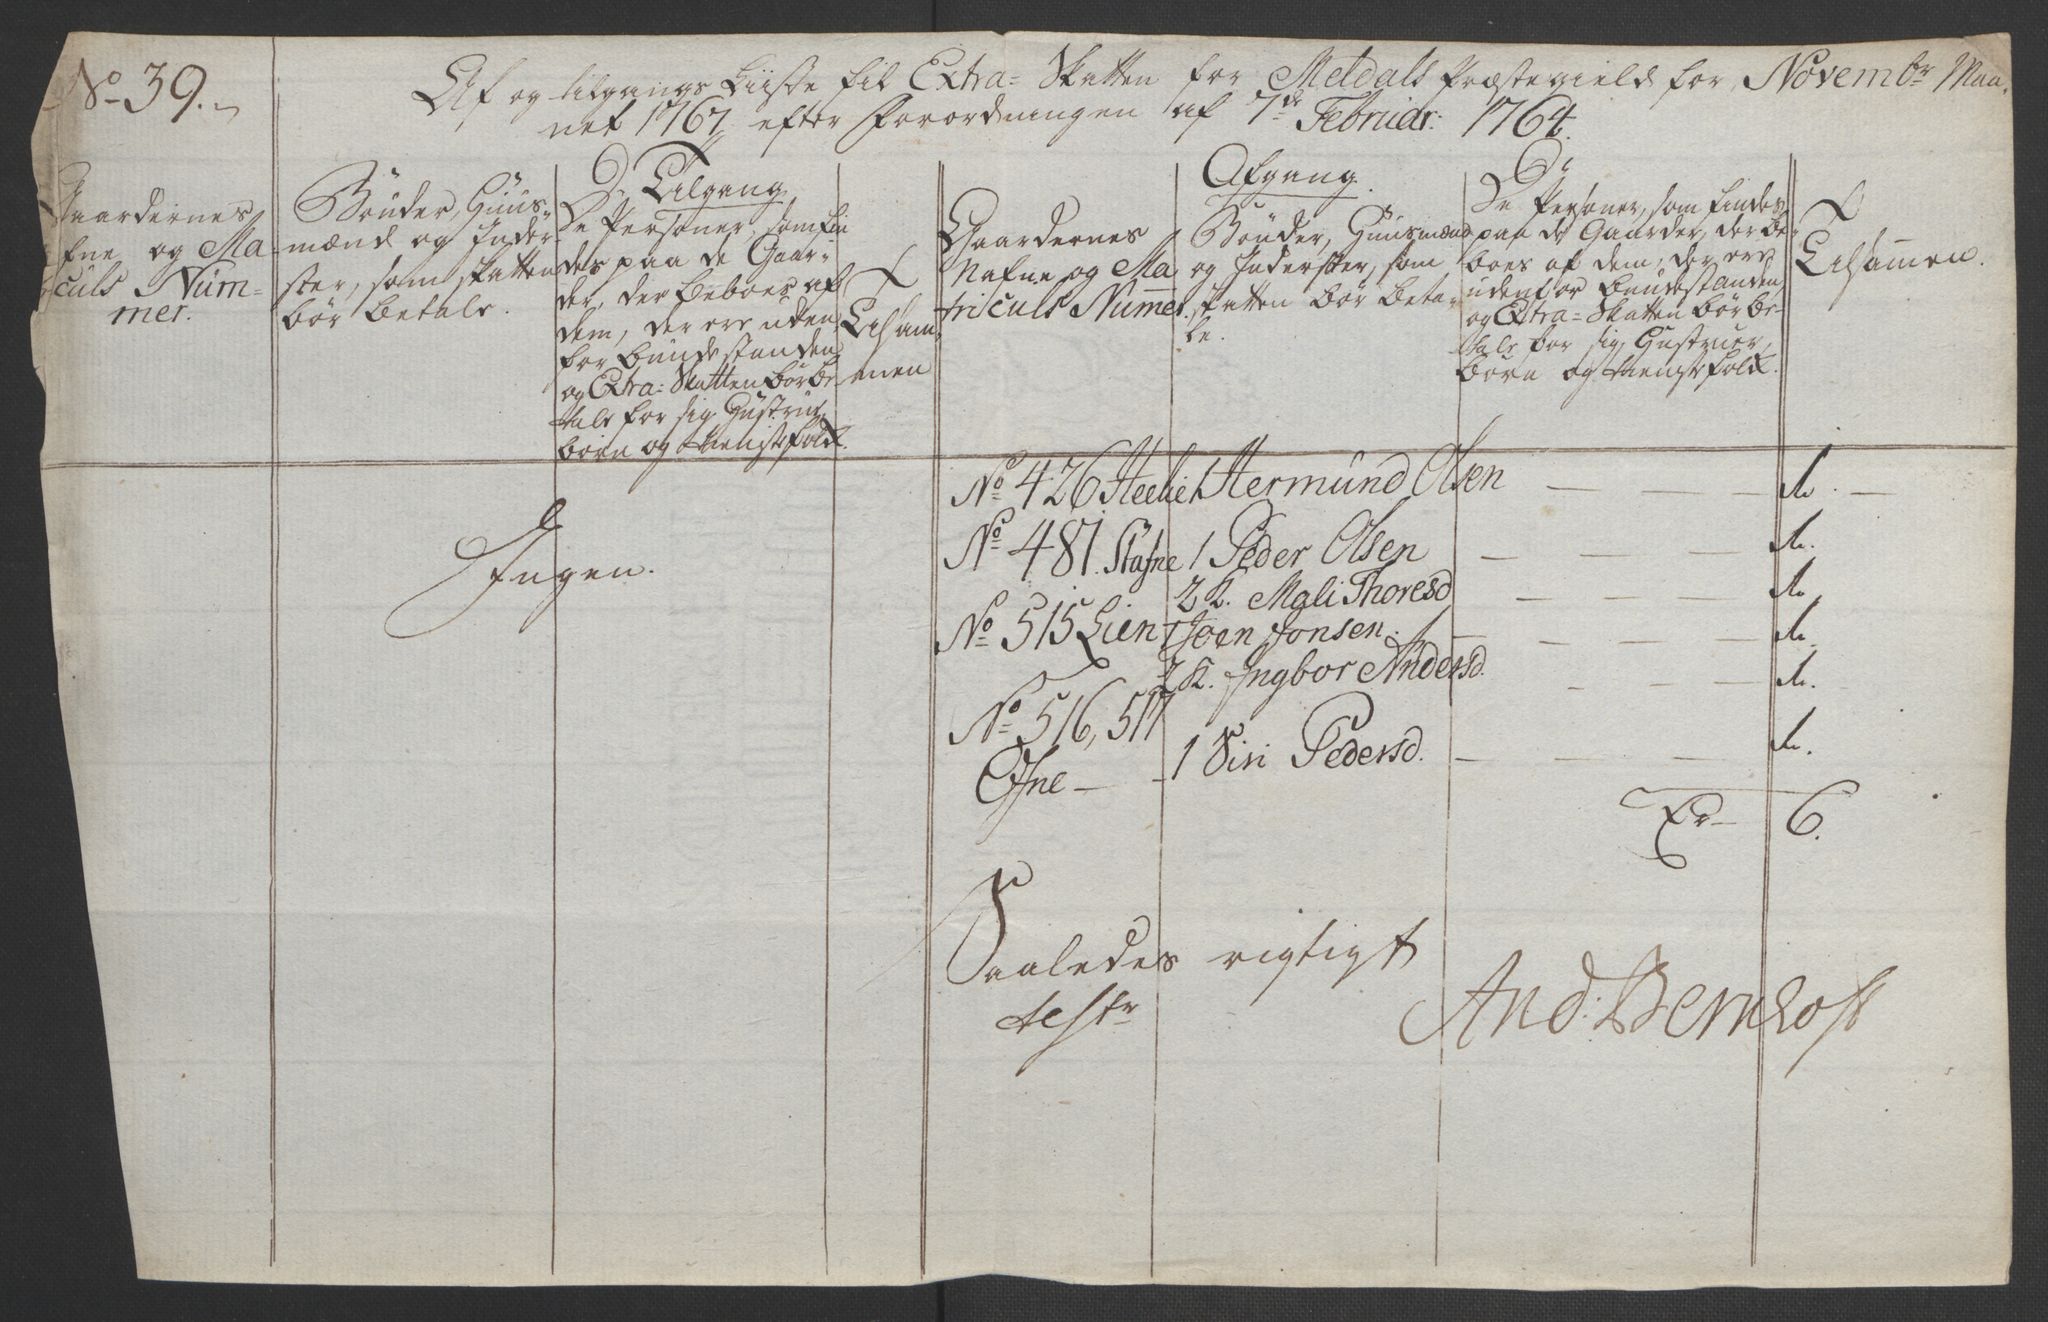 No 39.
Af og tilgangs Liiste til Extra-Skatten for Meldals Præstegield for Novembr Maa-
net 1767 efter Forordningen af 7de Februar: 1764.
Gaardernes
Nafne og Ma-
triculs Num-
mer.
Bönder, Huus-
mænd og Inder-
ster, som skatten
bör betale.
Tilgang
De Personer, som fin
des paa de Gaar-
der, der beboes af
dem, der ere uden
for bondestanden
og Extra-Skatten bör be
tale for sig, Hustrue,
börn og tienestefolk.
Tilsam-
men
Gaardernes
Nafne og Ma
triculs Numer.
Afgang.
Bönder, Huusmænd
og Inderster, som
skatten bör beta-
le.
De Personer, som findes
paa de Gaarder, der be-
boes af dem, der ere
udenfor bondestanden
og Extra-Skatten bör be-
tale for sig, Hustruer,
börn og tienestefolk.
Tilsammen.
Ingen.
No 426 1 Hermund Olsen — — — 1.
No 481. Stafne 1 Peder Olsen — — — 1.
2 K. Mali Thoresd — — — 1.
No 515 Lien 1 Joen Jonsen. — — — 1.
2 K. Ingbor Andersd. — — — 1.
No 516, 517
Öfne — 1 Siri Pedersd. — — — 1.
Er 6.
Saaledes rigtigt
testr
And: Bernhoft